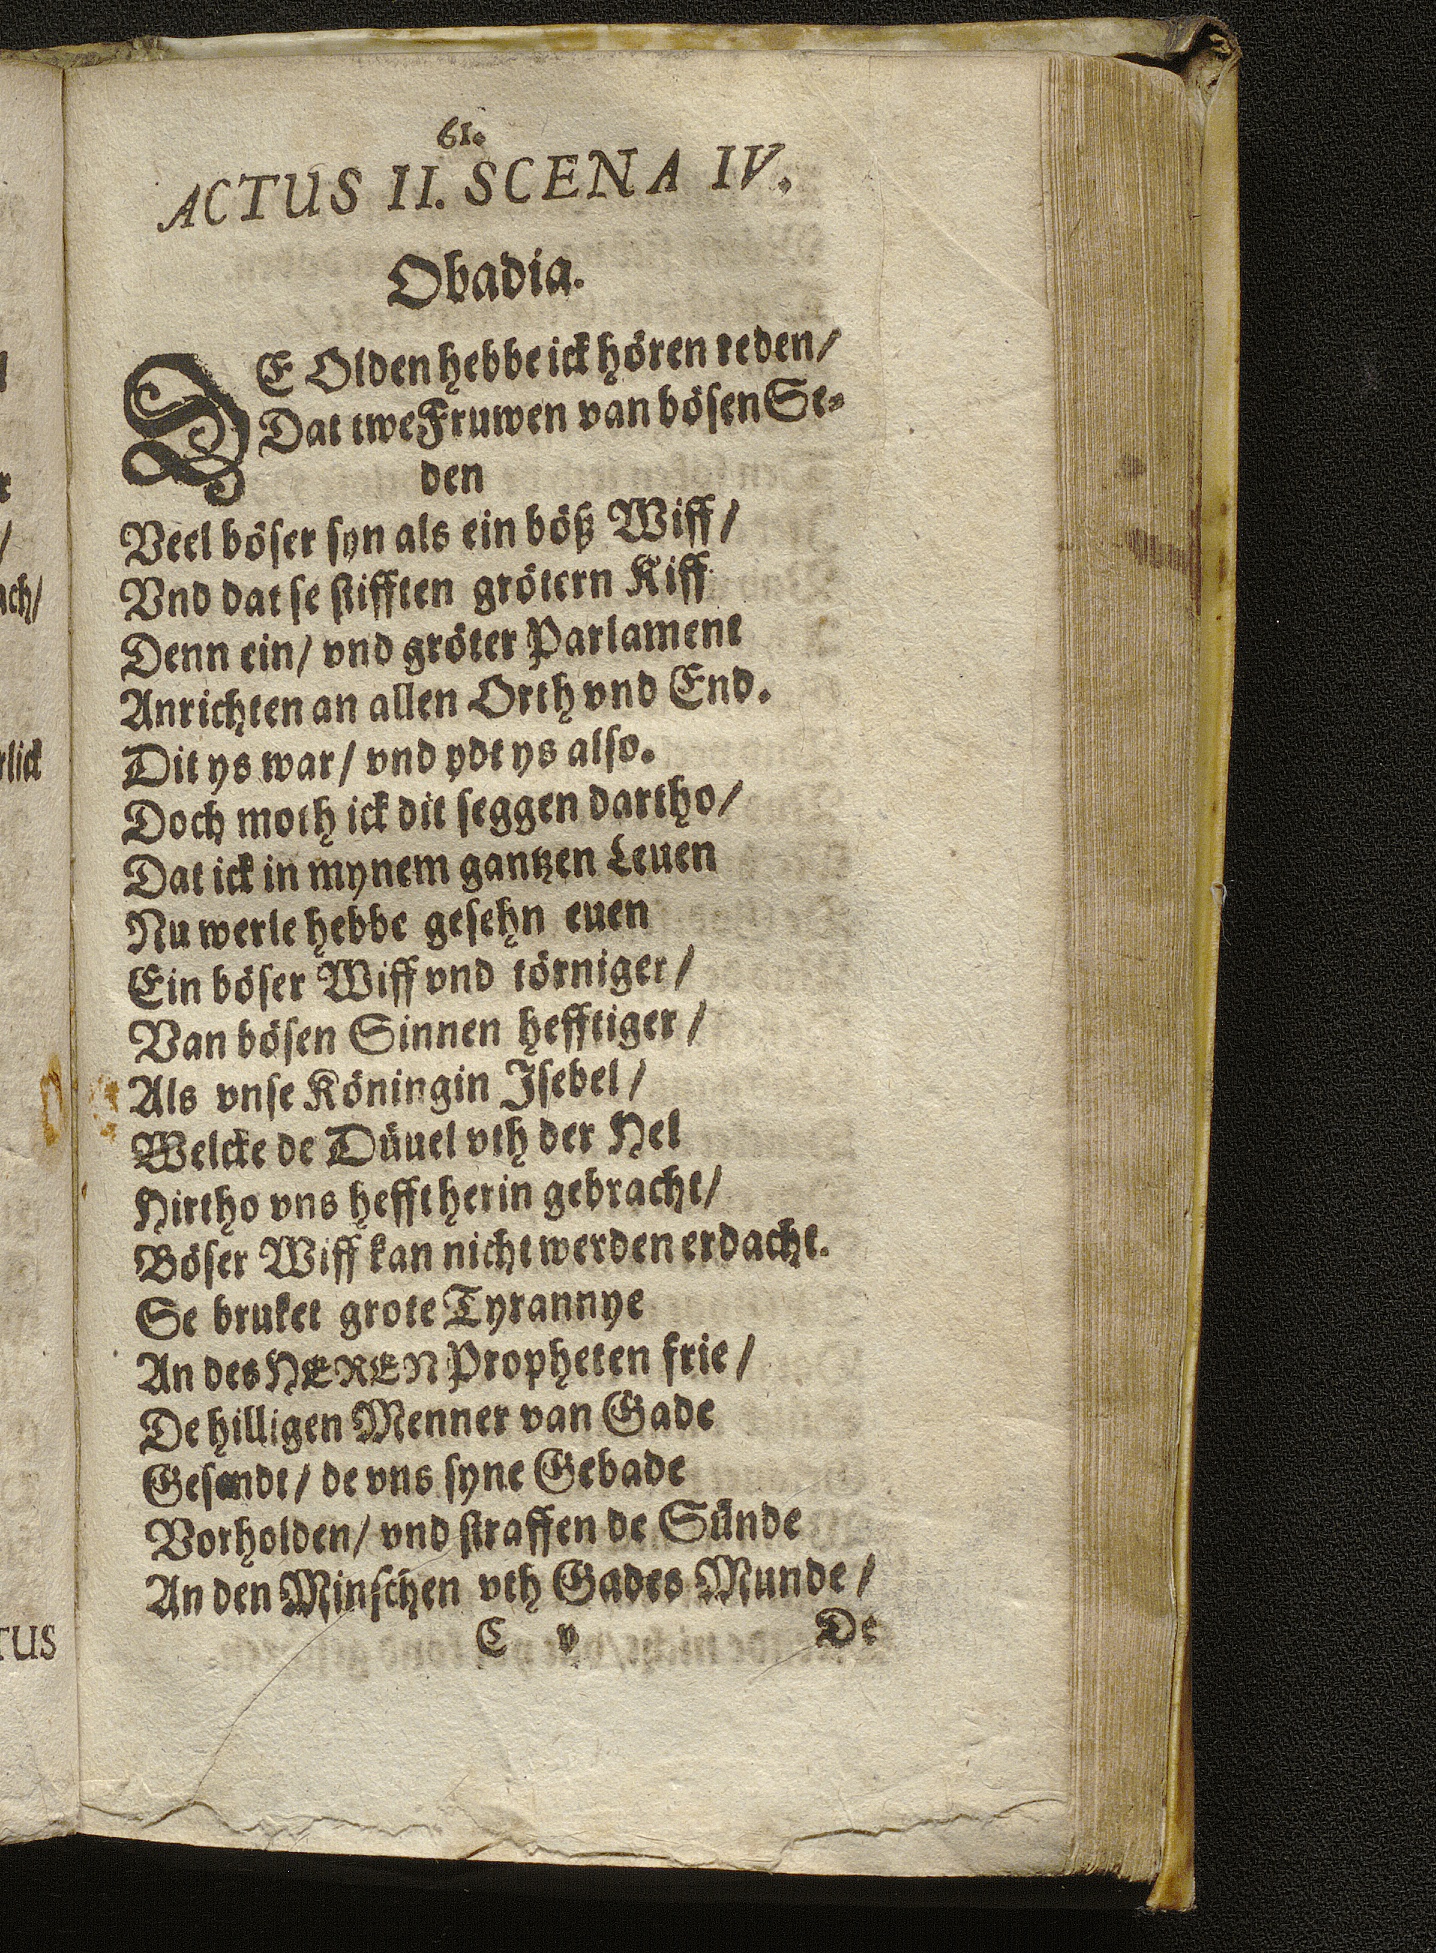 61.
ACTUS II. SCENA IV.
Obadia.
DE Olden hebbe ick hören reden/
Dat twe Fruwen van bösen Se-
den
Veel böser syn als ein böß Wiff/
Vnd dat se stifften grötern Kiff
Denn ein/ vnd gröter Parlament
Anrichten an allen Orth vnd End.
Dit ys war/ vnd ydt ys also.
Doch moth ick dit seggen dartho/
Dat ick in mynem gantzen Leuen
Nu werle hebbe gesehn euen
Ein böser Wiff vnd törniger/
Van bösen Sinnen hefftiger/
Als vnse Köningin Isebel/
Welcke de Düuel vth der Hel
Hirtho vns hefft herin gebracht/
Böser Wiff kan nicht werden erdacht.
Se bruket grote Tyrannye
An des HEREN Propheten frie/
De hilligen Menner van Gade
Gesandt/ de vns syne Gebade
Vorholden/ vnd straffen de Sünde
An den Minschen vth Gades Munde/
C v De
ach/
rlick
TUS